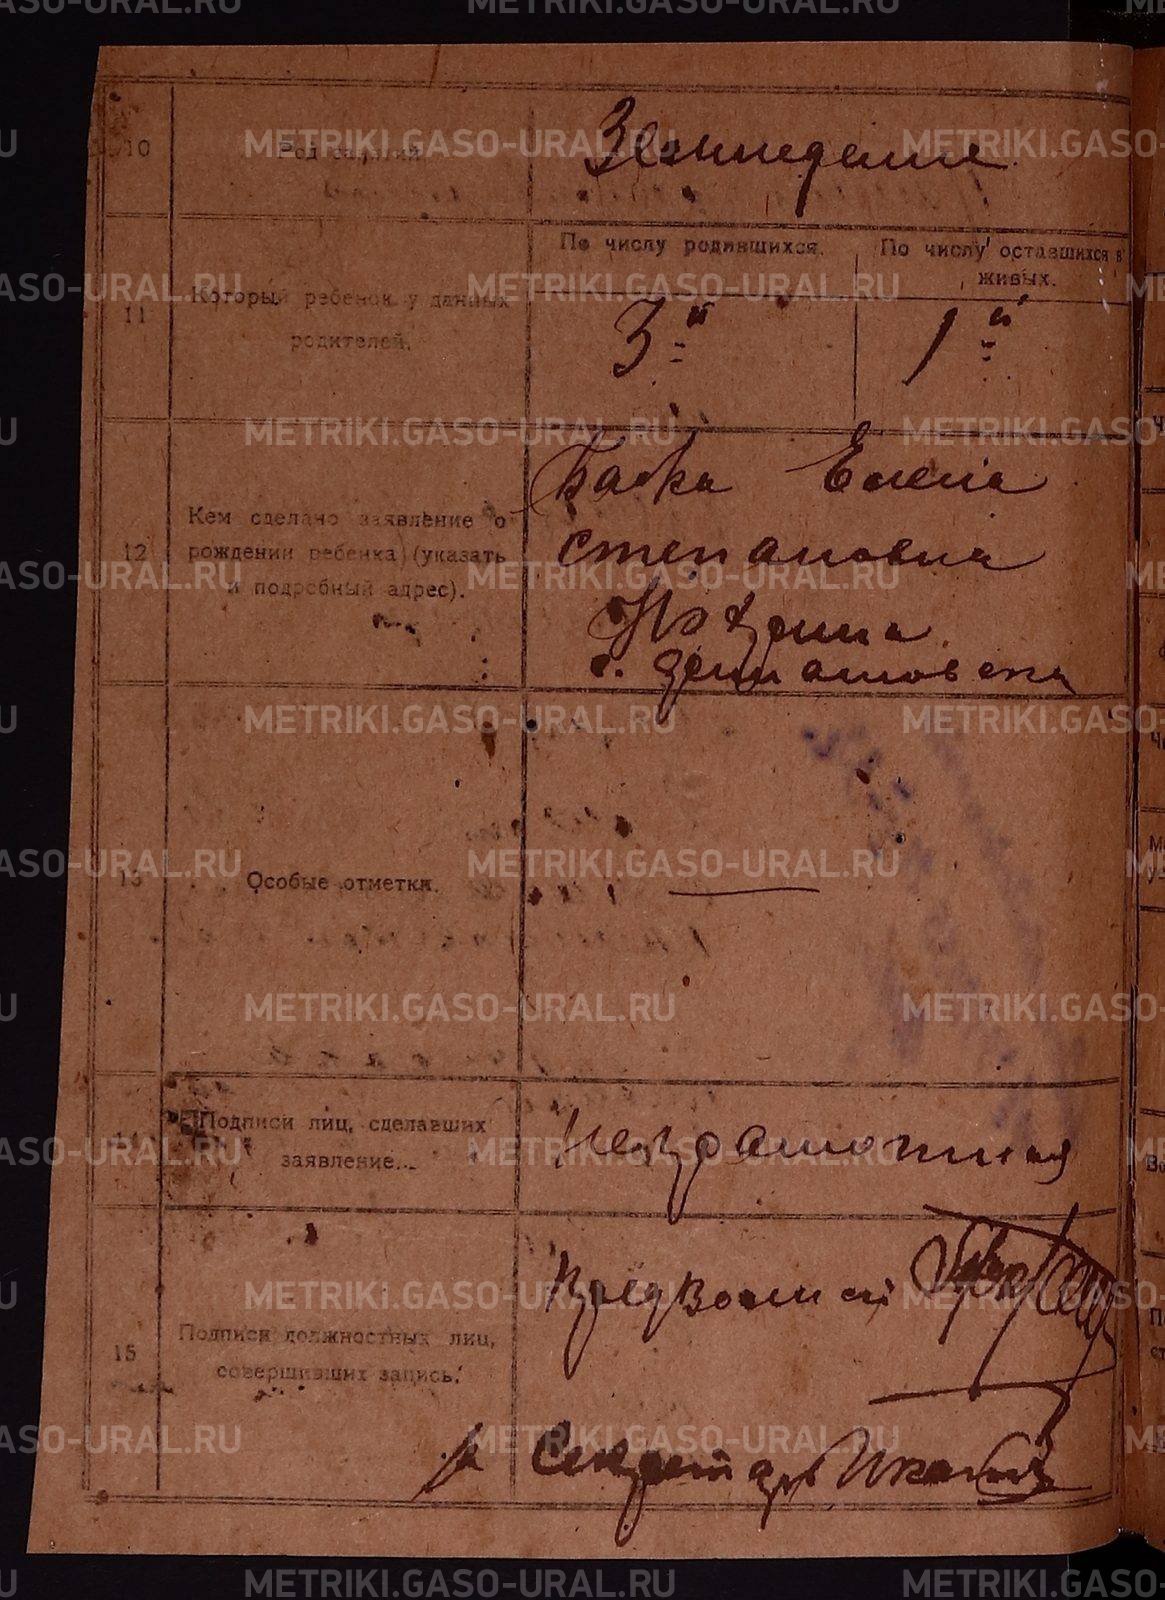 10
Род занятий
Земледелие
11
Который ребенок у данных
родителей.
По числу родившихся.
По числу оставшихся в
живых.
3й
1й
12
Кем сделано заявление о
рождении ребенка (указать
и подробный адрес).
Бабка Елена
степановна
с.
13
Особые отметки.
14
Подписи лиц, сделавших
заявление.
Неграмотная
15
Подписи должностных лиц,
совершивших запись.
Секретарь
METRIKI.GASO-URAL.RU